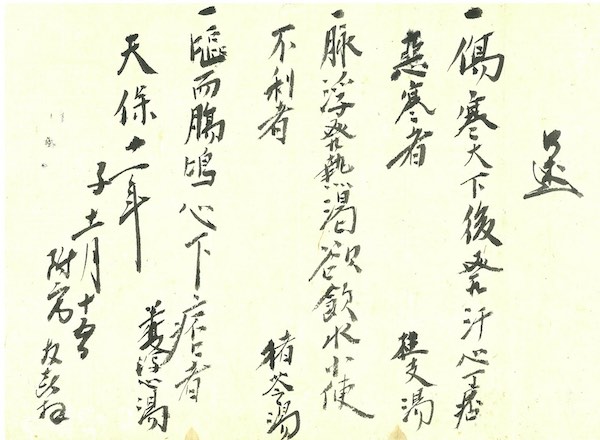 口述
一傷寒大下後発汗心下痞
悪寒者 桂支湯
一脉浮発熱渇欲飲水小便
不利者 猪苓湯
一嘔而腸鳴心下痞者
瀉心湯
天保十一年
子十一月十